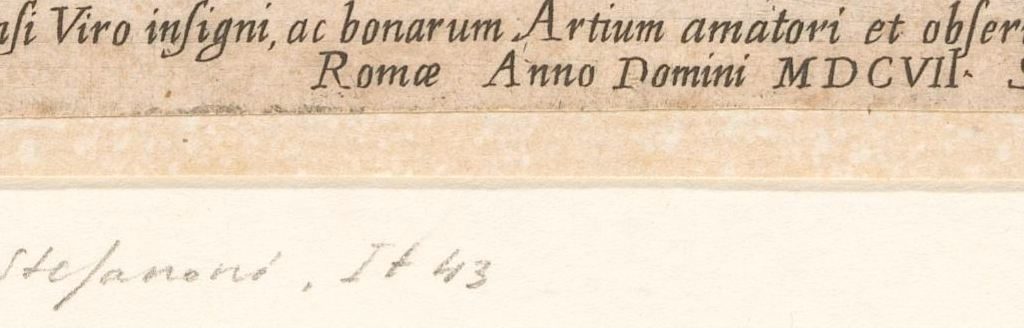 nſi Viro inſigni, ac bonarum Artium amatori et obſer
Romæ Anno Domini MDCVII. S
Stefanoni, It 43